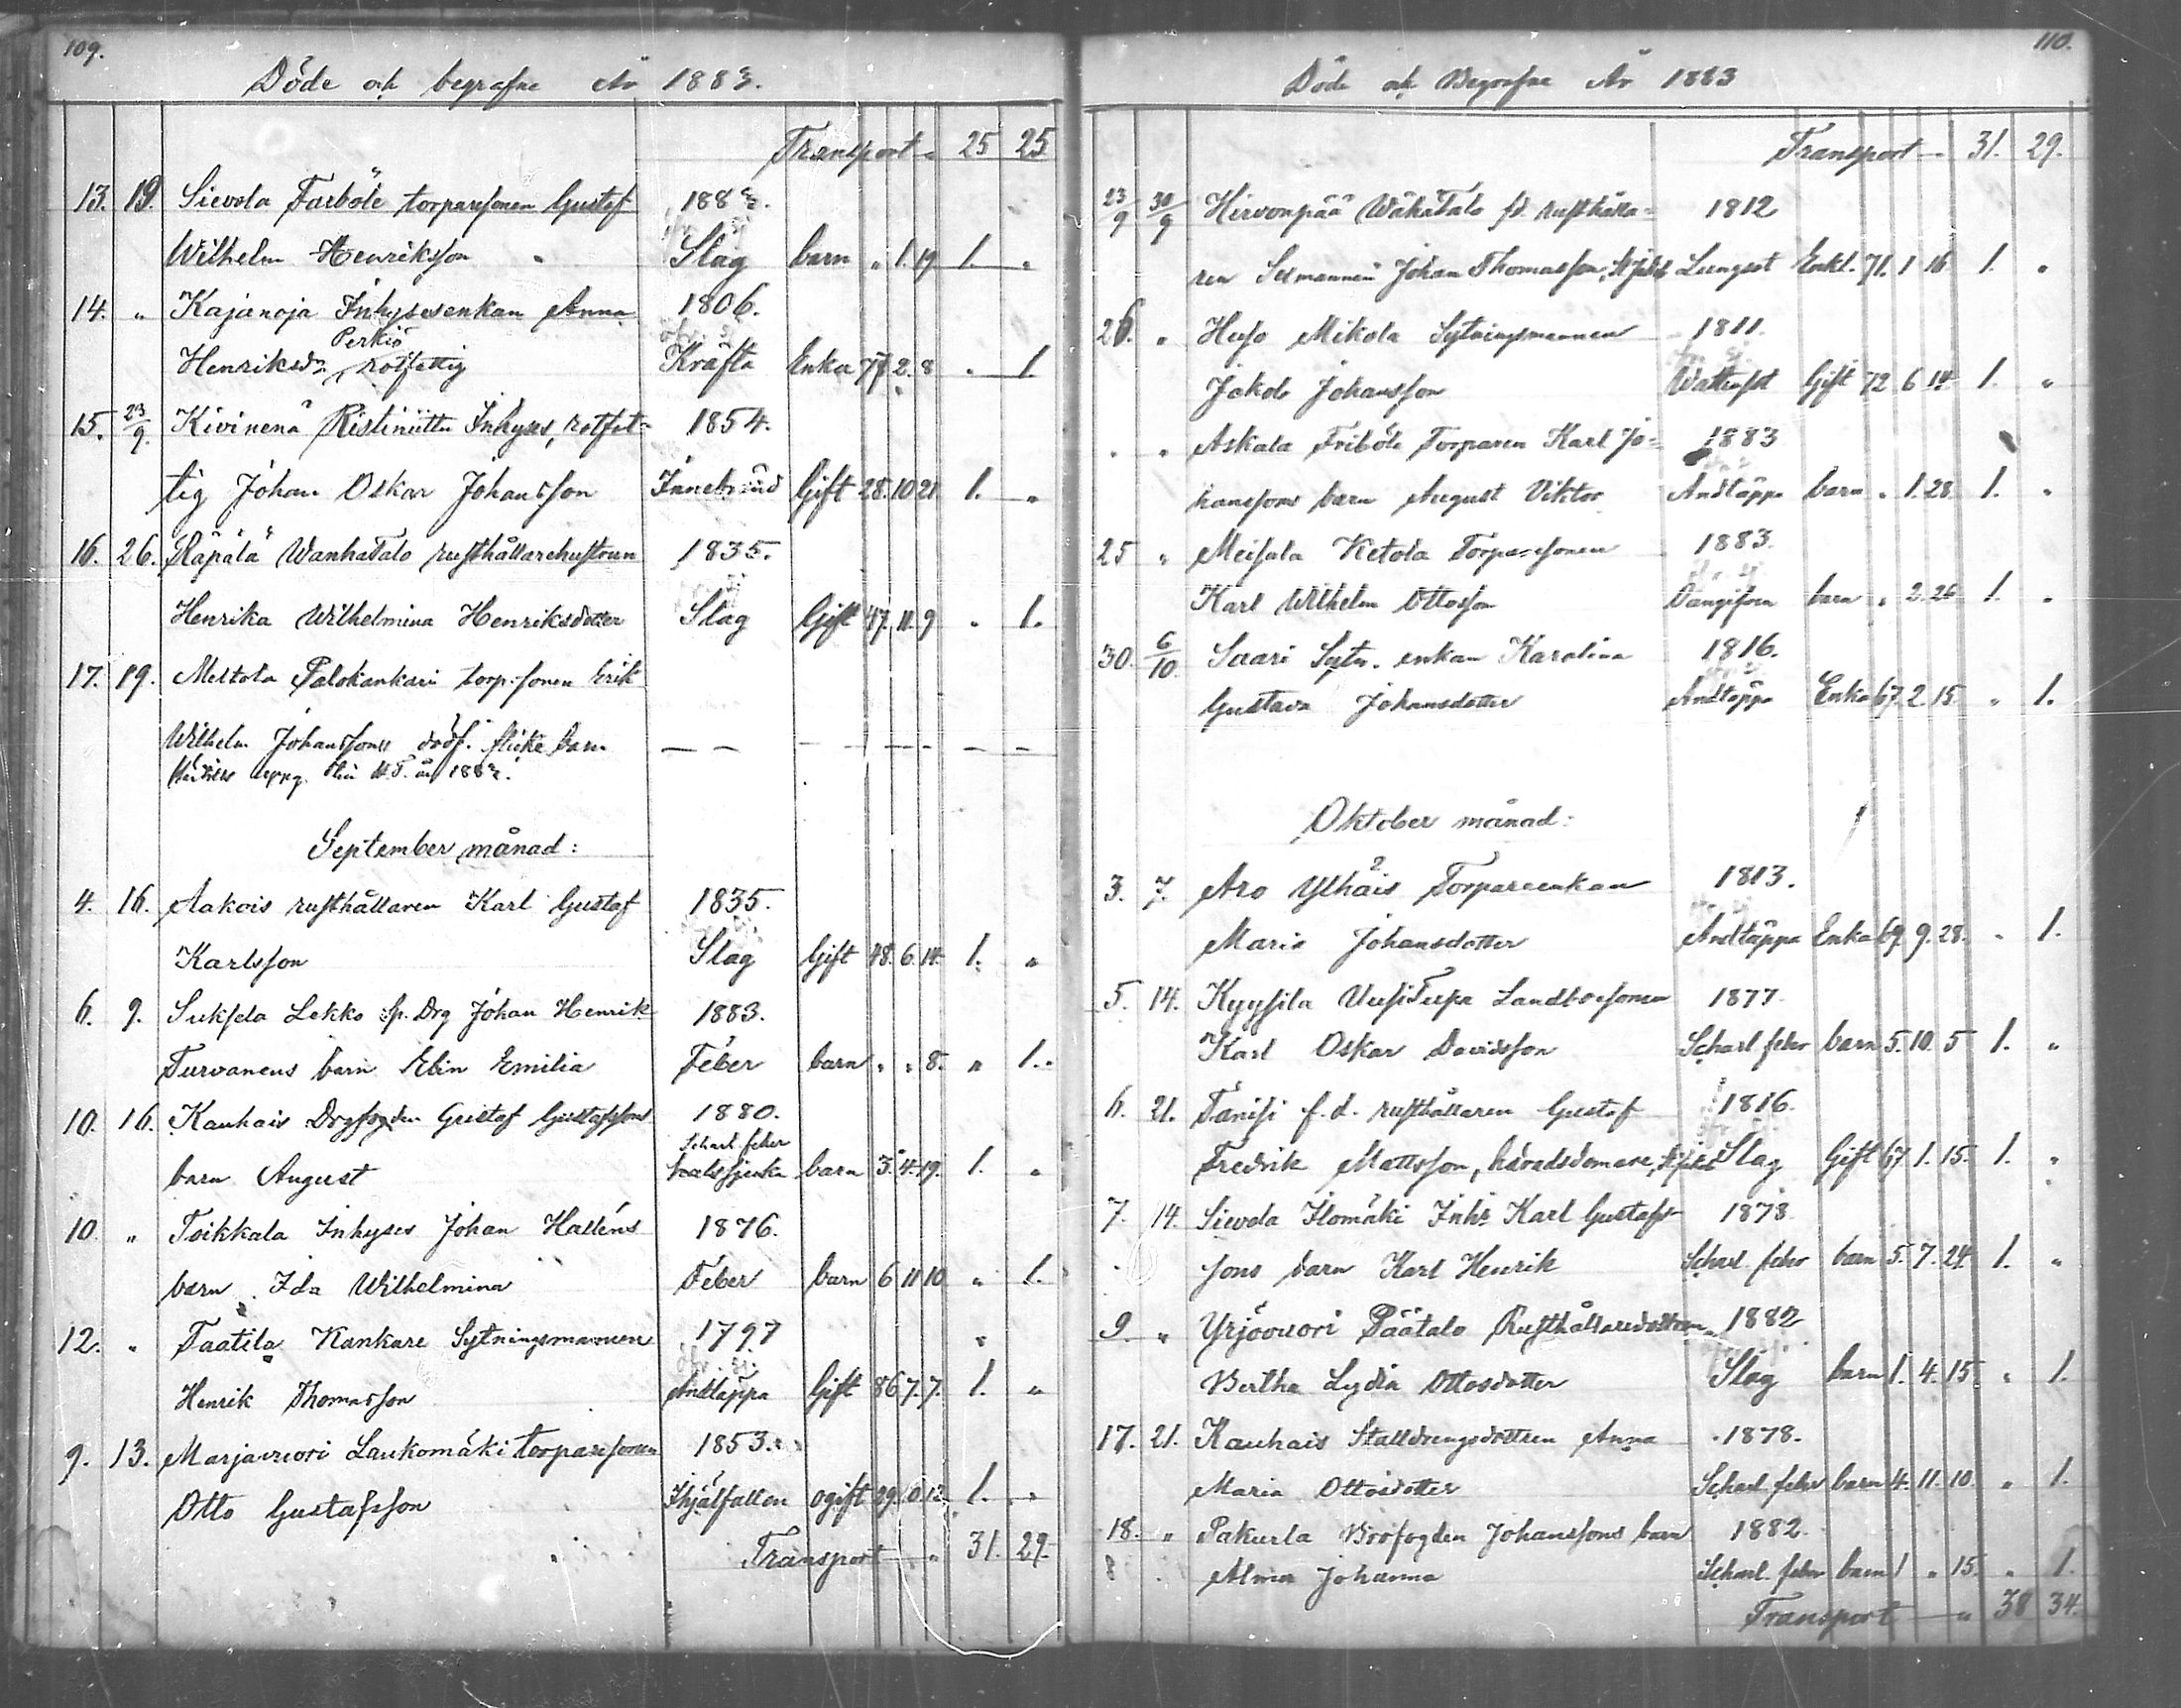 109.
Döde och begrafne År 1883.
Transport „ 25 25
13. 19. Sievola Farböle torparesonen Gustaf 1883.
Wilhelm Henriksson Slag barn „ 1. 19 1. „
14. „ Kajanoja Inhysesenkan Anna 1806.
Perkiö
Henriksdr rotfattig Kräfta Enka 77 2. 8 „ 1.
15. 23/9. Kivinenä Ristiniittu Inhyses, rotfat- 1854.
tig Johan Oskar Johansson Gift 28. 10 21. 1. „
16. 26. Wanhatalo rusthållarehustrun 1835.
Henrika Wilhelmina Henriksdotter Slag Gift 47. 11. 9 „ 1.
17. 19. Meltola Palokankari torp.sonen Erik
Wilhelm Johanssons dödf. flicke barn — — — — — — —
uppg. år 1883.
September månad:
4. 16. Aakois rusthållaren Karl Gustaf 1835.
Karlsson Slag Gift 48. 6. 14. 1. „
6. 9. Suksela Lekko Sp. Drg Johan Henrik 1883.
Turvanens barn Elin Emilia Feber barn „ „ 8. „ 1.
10. 16. Kauhais Drgfogden Gustaf Gustafssons 1880.
Scharl. feber
barn August halssjuka barn 3. 4. 19. 1. „
10 „ Toikkala Inhyses Johan Halléns 1876.
barn Ida Wilhelmina Feber barn 6 11 10 „ 1.
12. „ Taatila Kankare Sytningsmannen 1797
Henrik Thomasson Andtäppa Gift 86 7. 7. 1. „
9. 13. Marjavuori Laukomäki torparesonen 1853.
Otto Gustafsson Ihjälfallen ogift 29. 0 12. 1. „
Transport „ 31. 29.
110.
Döde och Begrafne År 1883
Transport „ 31. 29.
23/9 30/9 Hirvonpää Wähätalo fd. rusthålla- 1812
ren Johan Thomasson, Lungsot Enkl. 71. 1 16 1. „
26. „ Mikola Sytningsmannen 1811.
Jakob Johansson Wattusot Gift 72 6 14 1. „
„ „ Askala Friböle Torparen Karl Jo- 1883
hanssons barn August Viktor Andtäppa barn „ 1. 28. 1. „
25 „ Meisala Ketola Torparesonen 1883.
Karl Wilhelm Ottosson barn „ 2. 26 1. „
30. 6/10. Saari Sytn. enkan Karolina 1816.
Gustava Johansdotter Andtäppa Enka 67. 2. 15. „ 1.
Oktober månad:
3. 7. Aro Ylhäis Torpareenkan 1813.
Maria Johansdotter Andtäppa Enka 69. 9. 28. „ 1.
5. 14. Kyysilä Uusitupa Landbosonen 1877.
Karl Oskar Davidsson Scharl. feber barn 5. 10. 5 1. „
6. 21. f. d. rusthållaren Gustaf 1816.
Fredrik Mattsson, häradsdomare, Slag Gift 67 1. 15. 1. „
7. 14. Sievola Ilomäki Inhs Karl Gustafs- 1878
sons barn Karl Henrik Scharl. feber barn 5. 7. 24 1. „
9. „ Yrjövuori Päätalo Rusthållaredottern 1882
Bertha Lydia Ottosdotter Slag barn 1. 4. 15. „ 1.
17. 21. Kauhais Stalldrengsdottren Anna 1878.
Maria Ottosdotter Scharl. feber barn 4. 11. 10. „ 1.
18. „ Pakurla Brofogden Johanssons barn 1882.
8 Alma Johanna Scharl. feber barn 1 „ 15. „ 1.
Transport „ 38 34.